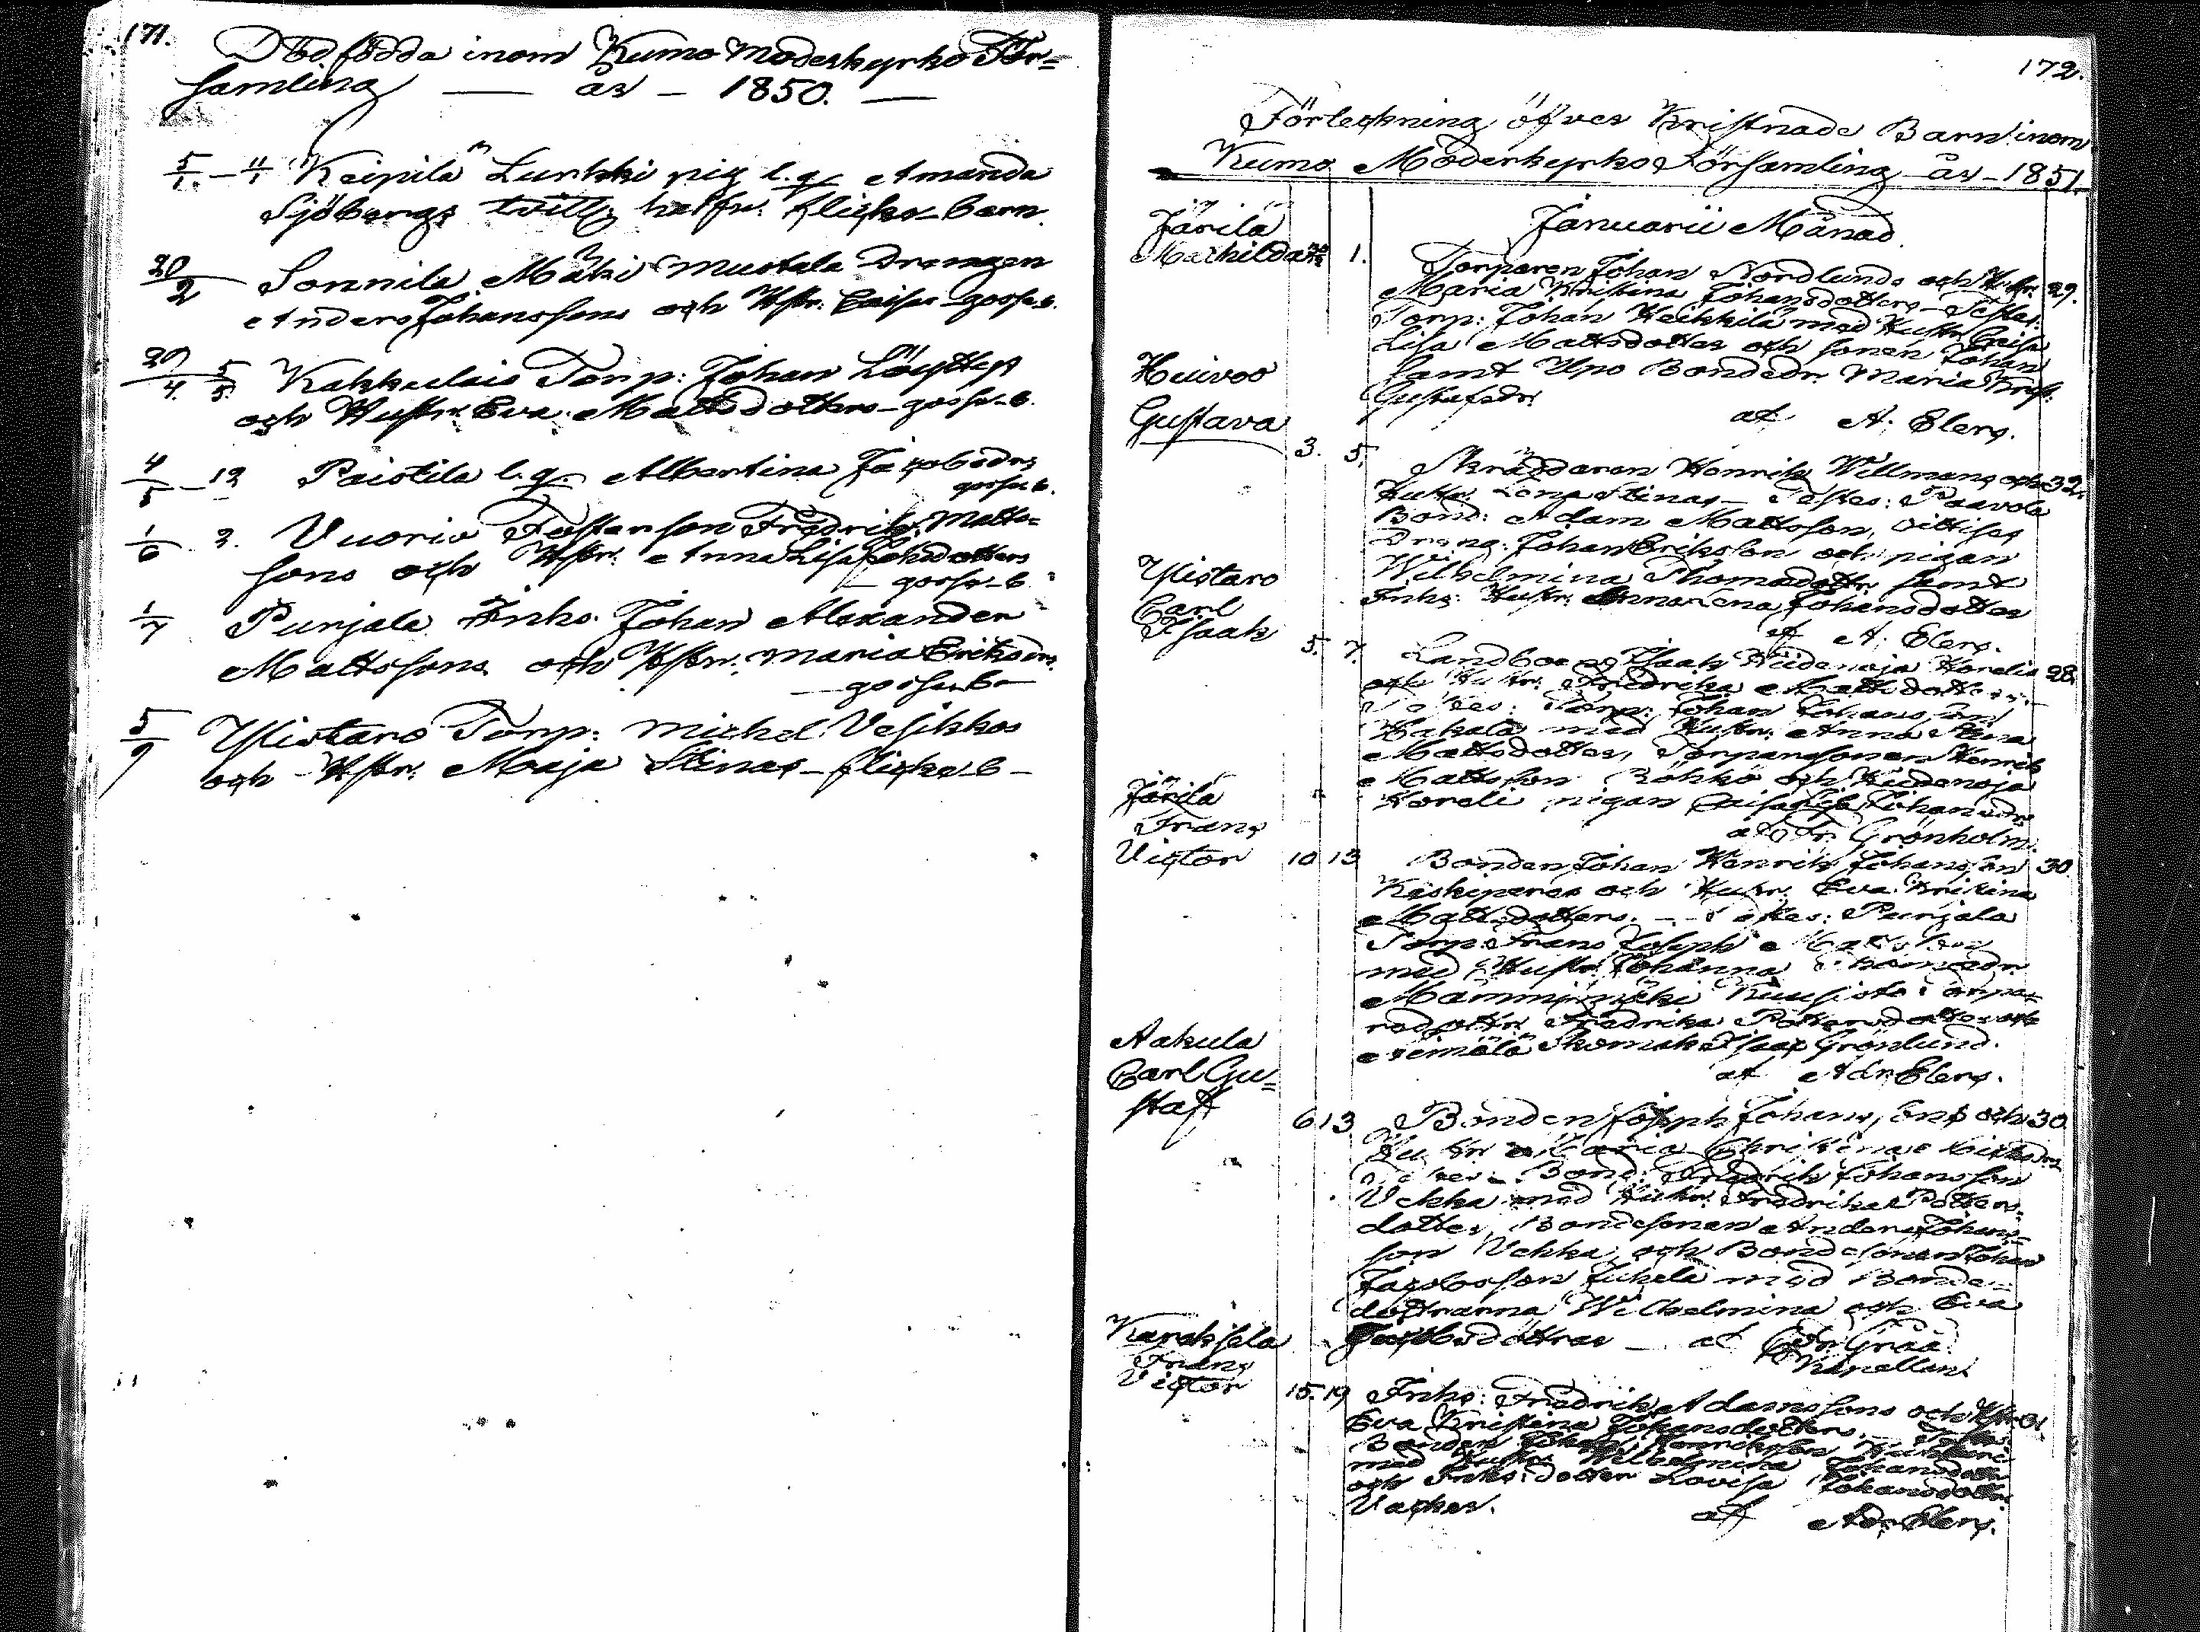 171.
Dödfödda inom Kumo Moderkyrko För=
samling — år — 1850. —
5/1. — 4/1 Keipilä Lurkki pig l. q. Amanda
Sjöbergs tvill. flicko-barn.
20/2 Sonnila Mäki Mustala Drängen
Anders Johanssons och Hstr. Caisas gosse-b.
29/4. 5/5. Kakkulais Torp: Johan Löyttys
och Hustr. Eva Mattsdotters – gosse-b.
4/5 — 12 Paistila l. q. Albertina Jacobsdrs
gosse b.
1/6 2. Vuorio Fredrik Matts=
sons och Hstr. Anna Lisa Johsdotters
— gosse-b.
1/7 Punjala Inhs. Johan Alexander
Mattssons och Hstr. Maria Eriksdrs.
— gosse-b —
5/9 Ylistaro Torp: Michel Vesikkos
och Hstr. Maja Stinas – flicke b –
172.
Förteckning öfver Kristnade Barn inom
Kumo Moderkyrko Församling år 1851.
Januarii Månad
Järilä
Mathilda 1. Torparen Johan Nordlunds och Hustr. 29.
Maria Kristina Johansdotters – Testes:
Torp: Johan Heikkilä med Hustr. Caisa
Lisa Mattsdotter och sonen Johan
samt Ypo Bondedr. Maria Krist.
Gustafsdr. af A. Elers.
Huivoo
Gustava 3. 5. Skräddaren Henrik Willmans och 32.
Hustr. Lena Stinas – Testes: Paavola
Bond: Adam Mattsson,
Dräng. Johan Eriksson och pigan
Wilhelmina Thomasdotter samt
Inhs: Hustr. Anna Lena Johansdotter
af A. Elers.
Ylistaro
Carl
Isaak 5. 7. Landboen Isaak Hiidenoja Horelis 28.
och Hustr. Fredrika Mattsdotters.
Testes: Torp: Johan Johansson
Hakala med Hustr. Anna Stina
Mattsdotter, Torparesonen Henrik
Mattsson och Hiidenoja
Horeli pigan Caisa Lisa Johansdr.
af Fr. Grönholm.
Järilä
Frans
Victor 10. 13 Bonden Johan Henrik Johansson 30.
Keskiperes och Hustr. Eva Kristina
Mattsdotters. – Testes: Punjala
Torp. Frans Joseph Mattsson
med Hustr. Johanna Thomasdr.
Torpa=
redottr. Fredrika Pettersdotter och
Skomak. Isaac Grönlund.
af Adr. Elers.
Aakula
Carl Gu=
staf 6. 13 Bonden Joseph Johanssons och 30.
Hustr. Maria Christina
Testes – Bond: Fredrik Johansson
Uckka med Hustr. Fredrika Petters=
dotter, Bondesonen Anders Johans=
son Uckka, och Bondesonen Johan
Jacobsson Jukela med Bonde=
döttrarna Wilhelmina och Eva
Jacobsdöttrar – af Fr. Gråå
Kapellan
Karaksela
Frans
Victor 15. 19 Inhs: Fredrik Adamssons och Hstr. 31.
Eva Kristina Johansdotters.
Bonden Johan Henriksson
med Hustr. Wilhelmina Johansdotter
och Inhs: dotter Lovisa Johansdotter
af Adr. Elers.